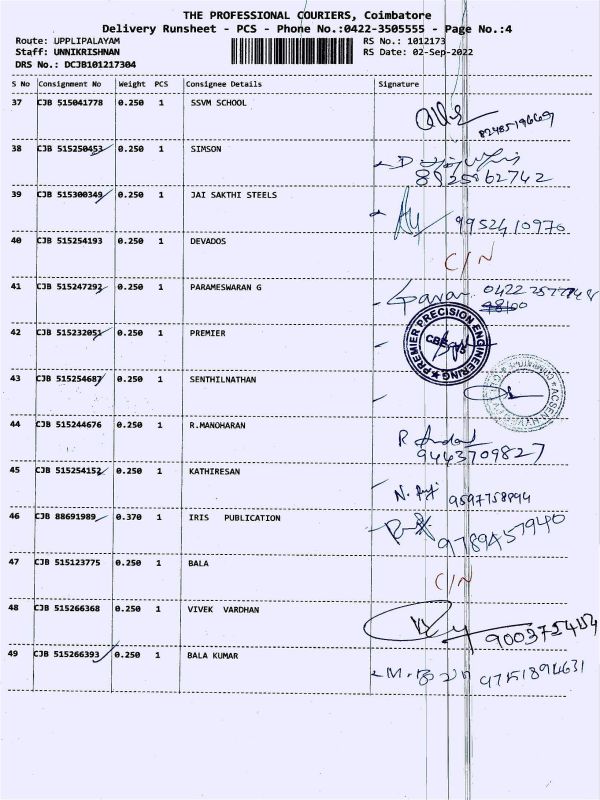 THE PROFESSIONAL COURIERS, Coimbatore
Delivery Runsheet - PCS - Phone No.:0422-3505555 - Page No.:4
Route: UPPLIPALAYAM RS No.: 1012173
Staff: UNNIKRISHNAN RS Date: 02-Sep-2022
DRS No.: DCJB101217304
S No Consignment No Weight PCS Consignee Details Signature
37 CJB 515041778 0.250 1 SSVM SCHOOL
8248519669
38 CJB 515250453 0.250 1 SIMSON
8925862742
39 CJB 515300349 0.250 1 JAI SAKTHI STEELS
9952410970
40 CJB 515254193 0.250 1 DEVADOS
C/N
41 CJB 515247292 0.250 1 PARAMESWARAN G
42 CJB 515232051 0.250 1 PREMIER
PREMIER PRECISION ENGINEERING
43 CJB 515254687 0.250 1 SENTHILNATHAN
44 CJB 515244676 0.250 1 R.MANOHARAN
9443709827
45 CJB 515254152 0.250 1 KATHIRESAN
9597758994
46 CJB 88691989 0.370 1 IRIS PUBLICATION
9789457940
47 CJB 515123775 0.250 1 BALA
C/N
48 CJB 515266368 0.250 1 VIVEK VARDHAN
49 CJB 515266393 0.250 1 BALA KUMAR